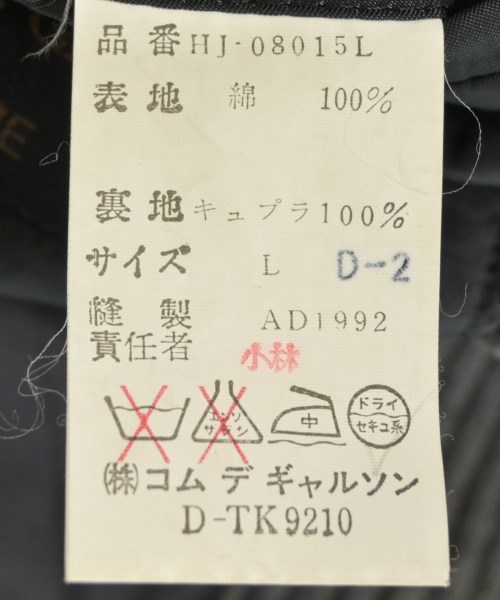 品番 HJ-08015L
表地 綿 100%
裏地 キュプラ 100%
サイズ L D-2
縫製 AD1992
責任者 小林
エンソ サラシ 中 ドライ セキユ系
㈱コム デ ギャルソン
D-TK9210